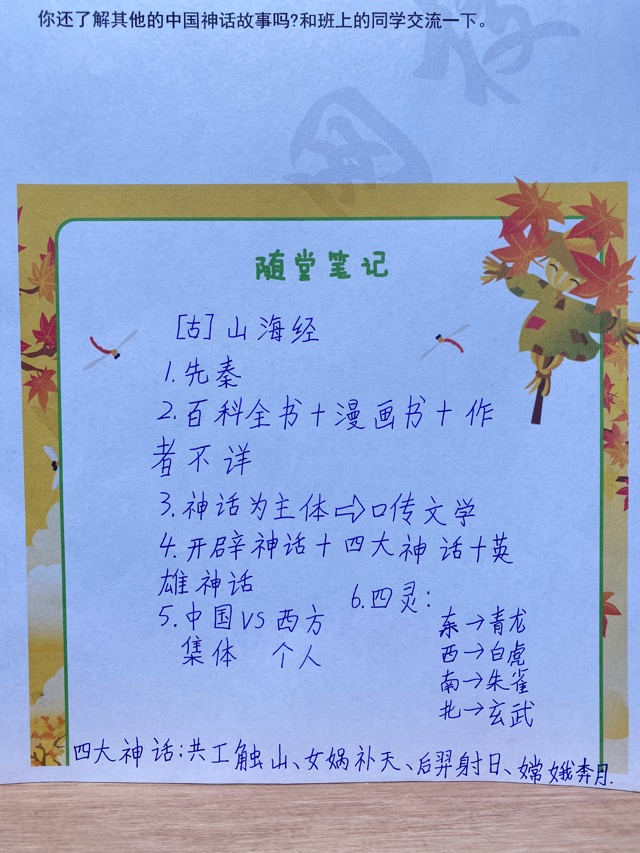 你还了解其他的中国神话故事吗?和班上的同学交流一下。
随堂笔记
[古]山海经
1.先秦
2.百科全书+漫画书+作
者不详
3.神话为主体⇨口传文学
4.开辟神话+四大神话+英
雄神话
5.中国VS西方
集体 个人
6.四灵:
东→青龙
西→白虎
南→朱雀
北→玄武
四大神话:共工触山、女娲补天、后羿射日、嫦娥奔月.